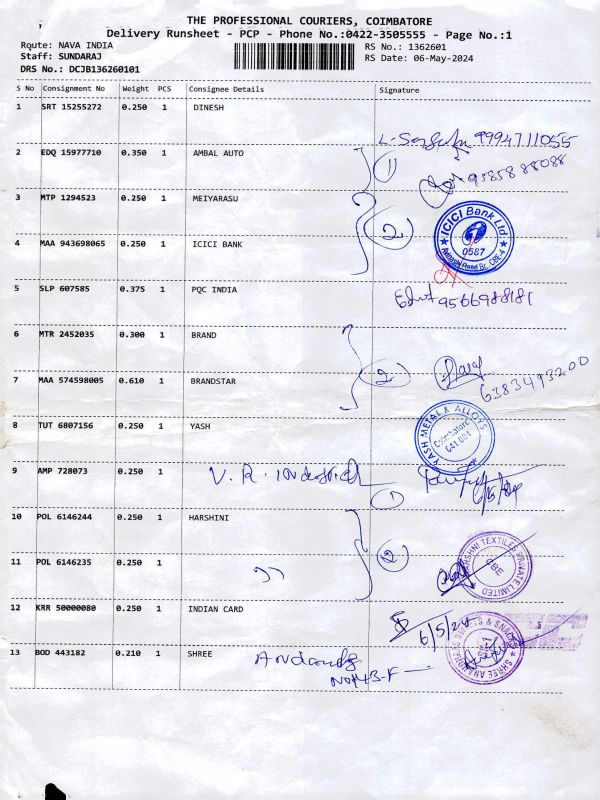 THE PROFESSIONAL COURIERS, COIMBATORE
Delivery Runsheet - PCP - Phone No.:0422-3505555 - Page No.:1
Route: NAVA INDIA
Staff: SUNDARAJ
DRS No.: DCJB136260101
RS No.: 1362601
RS Date: 06-May-2024
S No Consignment No Weight PCS Consignee Details Signature
1 SRT 15255272 0.250 1 DINESH
9994711055
2 EDQ 15977710 0.350 1 AMBAL AUTO
1
9585888088
3 MTP 1294523 0.250 1 MEIYARASU
2
ICICI Bank Ltd
0587
4 MAA 943698065 0.250 1 ICICI BANK
5 SLP 607585 0.375 1 PQC INDIA
9566988181
6 MTR 2452035 0.300 1 BRAND
2
6383493200
7 MAA 574598005 0.610 1 BRANDSTAR
8 TUT 6807156 0.250 1 YASH
YASH METAL & ALLOYS
Coimbatore
641 004
9 AMP 728073 0.250 1 V. R. Industrial
1
6/5/24
10 POL 6146244 0.250 1 HARSHINI
2
HARSHNI TEXTILES PRIVATE LIMITED
CBE
11 POL 6146235 0.250 1 ,,
12 KRR 50000080 0.250 1 INDIAN CARD
6/5/24
13 BOD 443182 0.210 1 SHREE